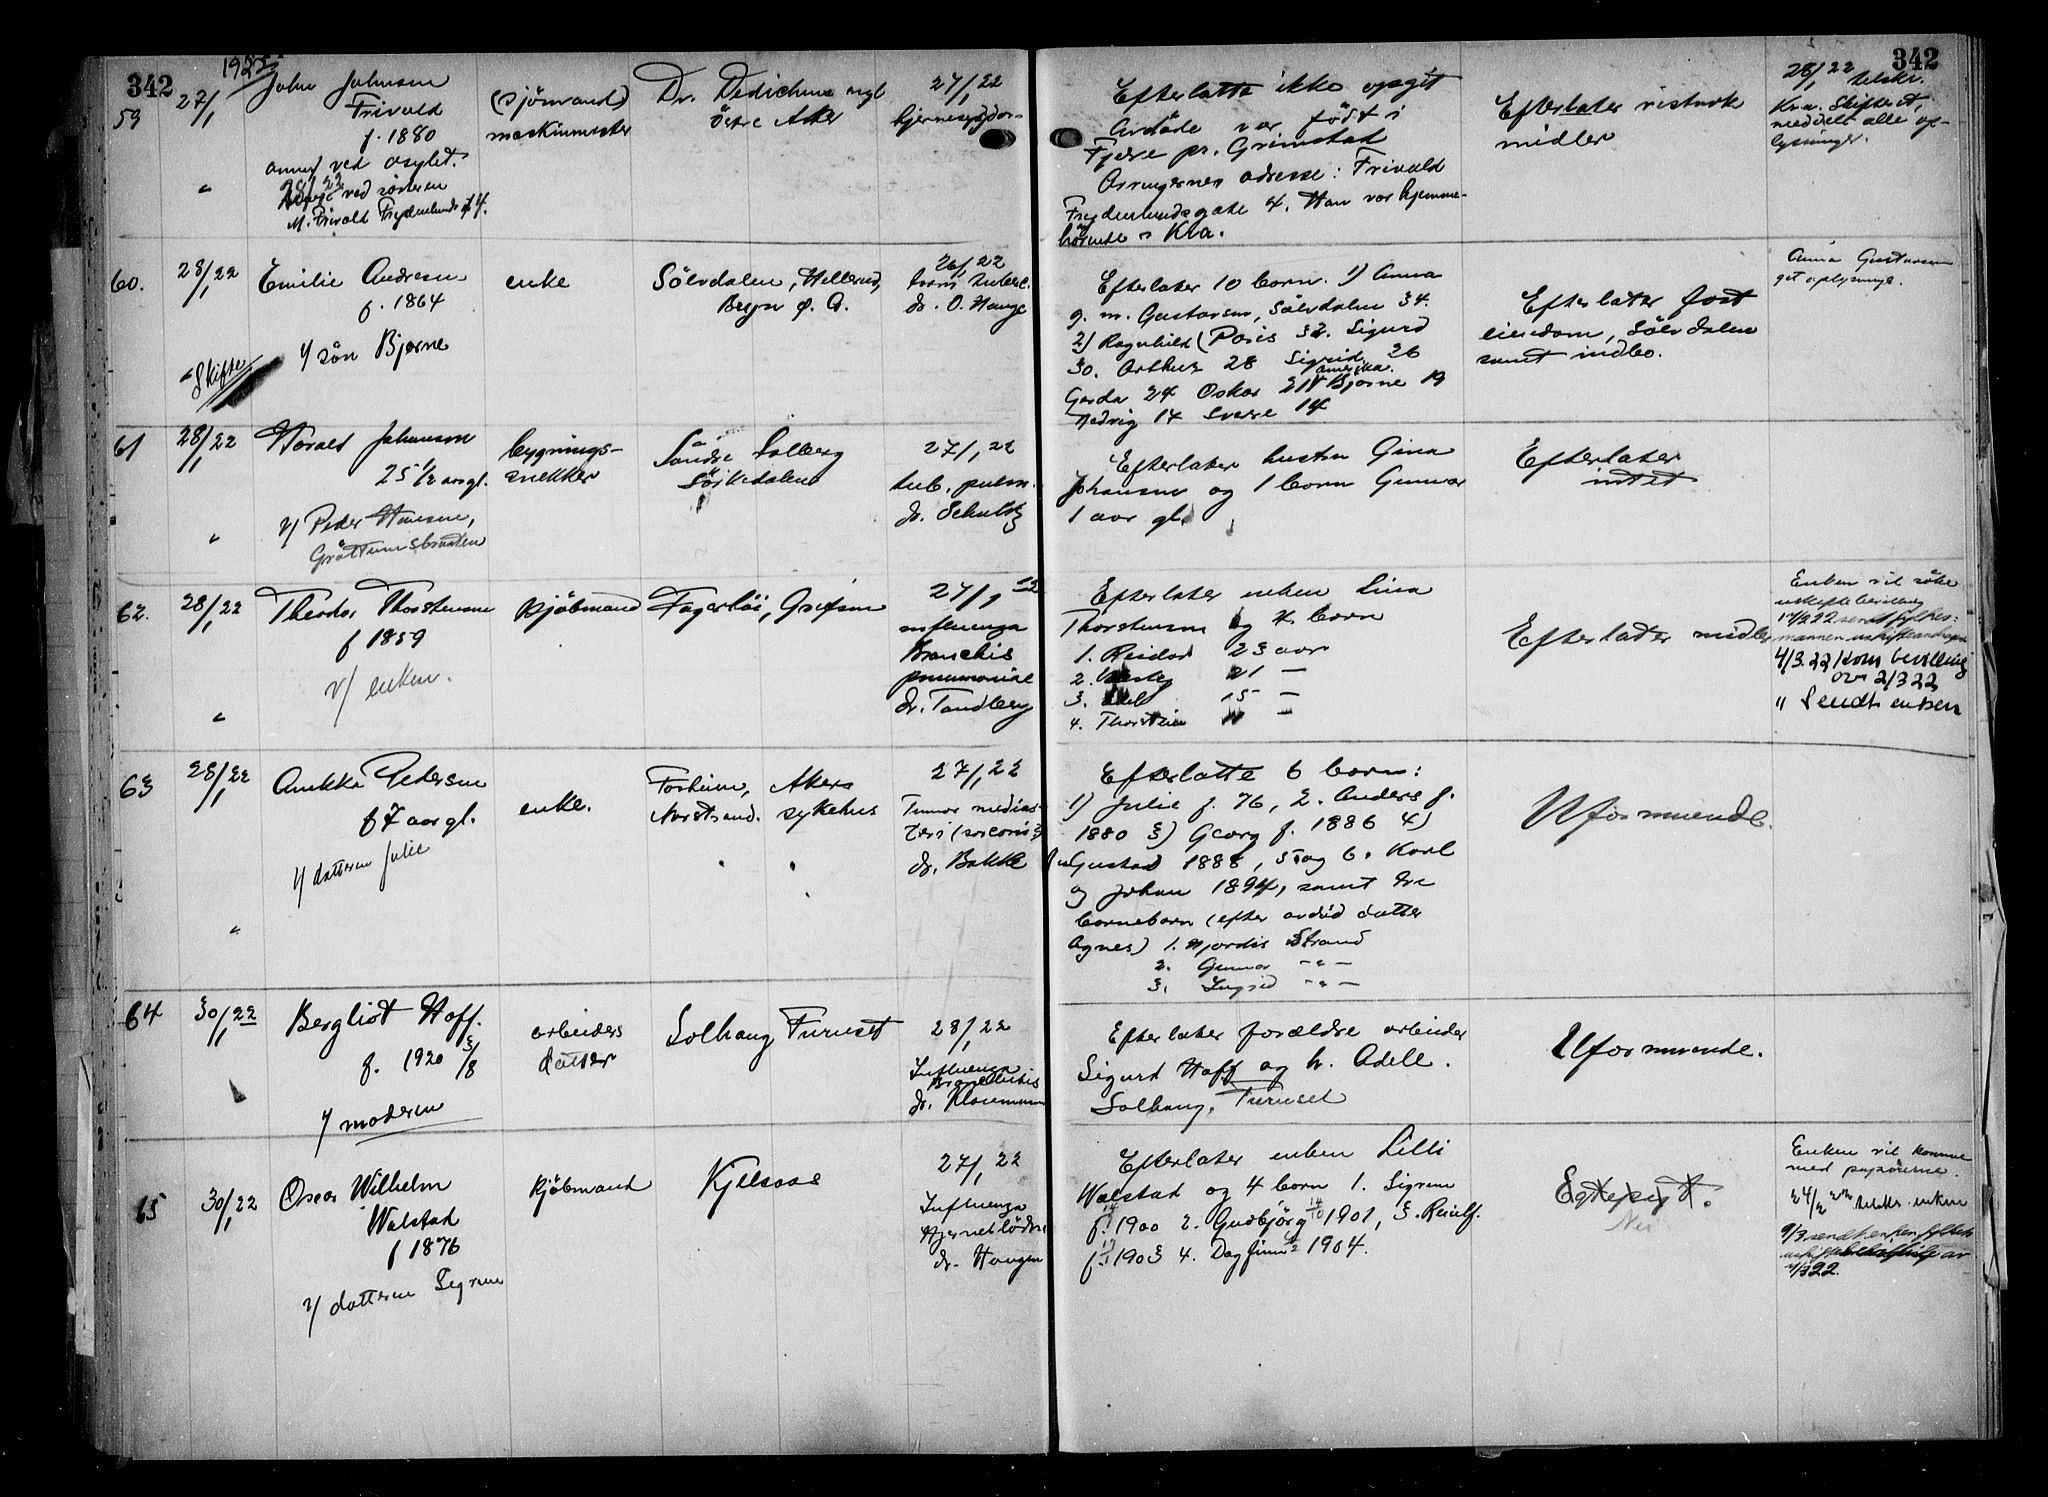 342
1922
342
59
27/1
John Johnsen
Frivold
f. 1880
anm. ved asylet.
28/1 22
ved sönnen
M. Frivold Frydenlunds gt 4.
(sjömand)
maskinmester
Dr. Dedichens asyl
östre Aker
27/1 22
Efterlatte ikke opgit
Avdöde var födt i
Fjære pr. Grimstad
Arvingernes adresse: Frivold
Frydenlundsgate 4. Han var hjemme-
hörende i Kra.
Efterlater vistnok
midler
28/1 22 tilskr.
Kra. Skifteret,
meddelt alle op-
lysninger.
60.
28/1 22
Skifte
Emilie Andresen
f. 1864
v/ sön Bjarne
enke
Sölvdalen, Hellerud,
Bryn ö. A.
26/1 22
dr. O. Hauge
Efterlater 10 born. 1) Anna
g. m. Gustavsen, Sölvdalen 34.
2) Ragnhild (Paris 32. Sigurd
30. Arthur 28 Sigrid 26
Amerika.
Gerda 24 Oskar 21 Bjarne 19
Hedvig 17 Sverre 14
Efterlater fast
eiendom, Sölvdalen
samt indbo.
Anna Gustavsen
git oplysninger.
61
28/1 22
Harald Johansen
25 1/2 aar gl.
v/ Peder Hansen,
Gråttumsbraaten
bygnings-
snekker
Söndre Solberg
Sörkedalen
27/1 22
tub. pulm.
dr. Schultz
Efterlater hustru Gina
Johansen og 1 barn Gunnar
1 aar gl.
Efterlater
intet
62.
28/1 22
Theodor Thorstensen
f 1859
v/ enken.
Kjöbmand
Fagerlöi, Grefsen
27/1 22
influenza
Bronchis
pneumonie
dr. Tandberg
Efterlater enken Lina
Thorstensen og 4 born
1. Reidar 23 aar
2. 21 —
3. 15 —
4. Thorstein —
Efterlater midler
Enken vil söke
uskiftebevilling
14/2 22 sendt fylkes-
mannen uskifteandrag
4/3.22 Kom bevilling
av 2/3 22
" Sendt enken
63
28/1 22
Anikka Pedersen
67 aar gl.
v/ datteren Julie
enke.
Forheim, Akers
Norstrand. sykehus
27/1 22
Tumor medias-
tini (sarcoms)
dr. Bakke
Efterlatte 6 born:
1) Julie f. 76, 2. Anders f.
1880 3) Georg f. 1886 4)
Gustav 1888, 5 og 6. Karl
og Johan 1894, samt tre
barnebarn (efter avdöd datter
Agnes) 1. Hjördis Strand
2. Gunnar -"-
3. Ingrid -"-
Uformuende.
64
30/1 22
Bergliot Hoff.
f. 1920 3/8
v/ moderen
arbeiders
datter
Solhaug Furuset
28/1 22
Influenza
Bronchitis
dr. Klouman
Efterlater forældre arbeider
Sigurd Hoff og h. Adele.
Solhaug, Furuset
Uformuende.
65
30/1 22
Oscar Wilhelm
Walstad
f 1876
v/ datteren Sigrun
Kjöbmand
Kjelsaas
27/1 22
Influenza
Hjerneblödn.
dr. Haugen
Efterlater enken Lilli
Walstad og 4 born 1. Sigrun
f. 1900 2. Gudbjörg 14/10 1901, 3. Reiulf.
f. 1903 4. Dagfinn 1904.
Ei opgit.
Enken vil komme
med papirerne.
24/2 22 tilskr. enken
9/3 sendt enken fylkets
uskiftebevilling av
4/3 22.